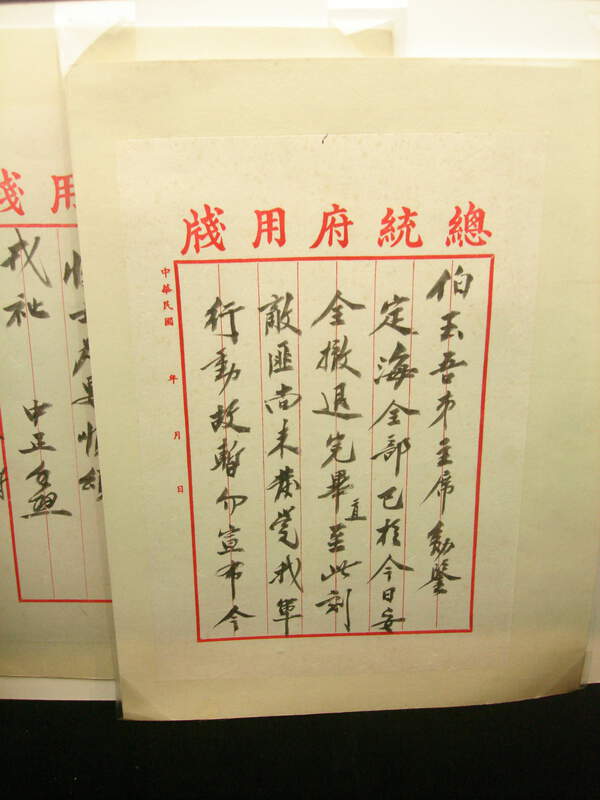 總統府用牋
伯玉吾弟主席勛鑒
定海全部已於今日安
全撤退完畢直至此刻
敵匪尚未發覺我軍
行動故暫勿宣布今
中華民國 年 月 日
用牋
戎祉
中正